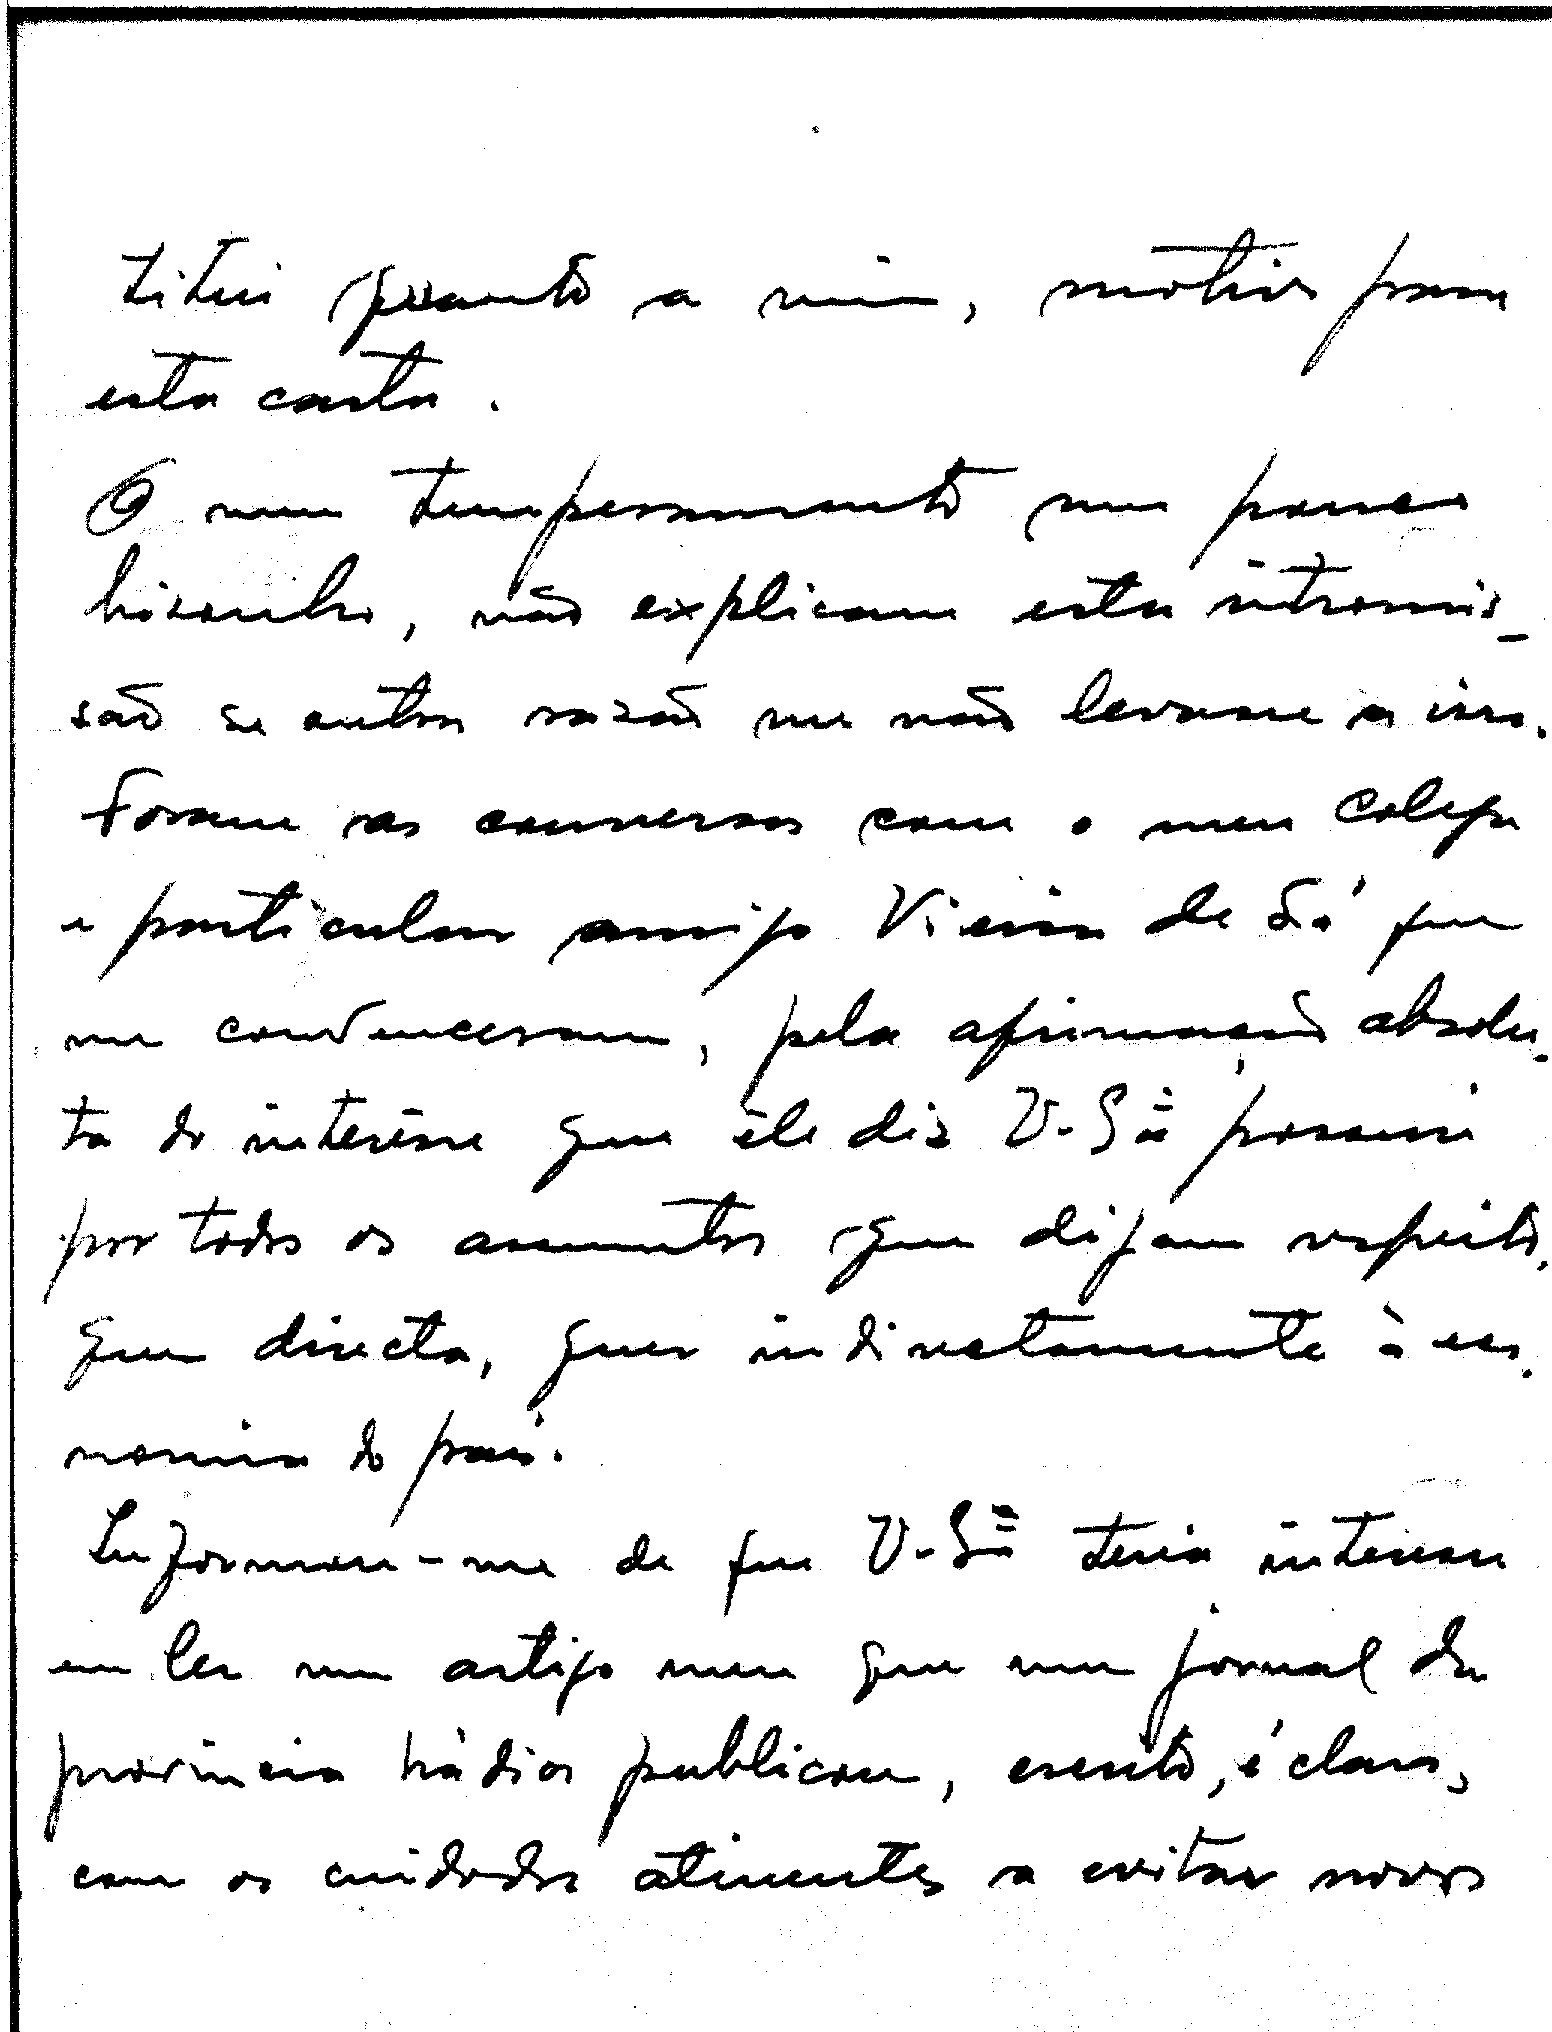 titui quanto a mim, motivo para
esta carta.
O meu temperamento um pouco
bisonho, não explicam esta intromis-
são se outra razão me não levasse a isso.
Foram as conversas com o meu colega
e particular amigo Vieira de Sá que
me convenceram, pela afirmação absolu-
ta do interêsse que êle diz V. Sª possui
por todos os assuntos que digam respeito,
quer directa, quer indirectamente à eco-
nomia do país.
Informou-me de que V. Sª teria interesse
em ler um artigo meu que um jornal da
província há dias publicou, escrito, é claro,
com os cuidados atinentes a evitar novos